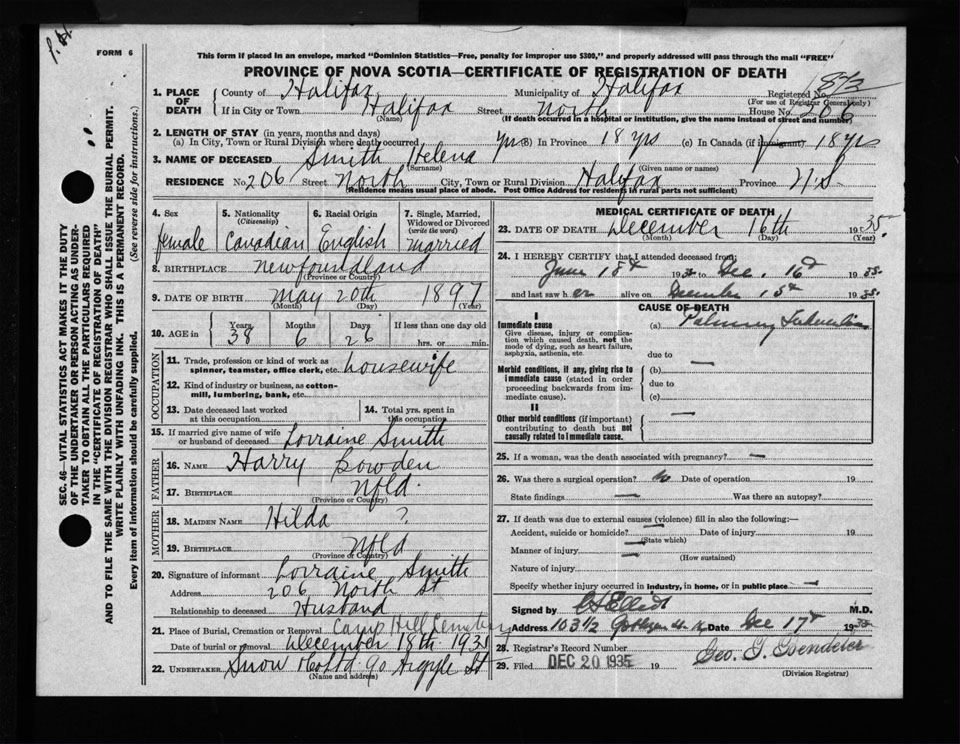 FORM 6
This form if placed in an envelope, marked "Dominion Statistics—Free, penalty for improper use $300," and properly addressed will pass through the mail "FREE"
PROVINCE OF NOVA SCOTIA—CERTIFICATE OF REGISTRATION OF DEATH
1. PLACE OF DEATH County of Halifax Municipality of Halifax Registered No.
(For use of Registrar General only)
If in City or Town Halifax Street North House No. 206
(Name) (If death occurred in a hospital or institution, give the name instead of street and number)
2. LENGTH OF STAY (in years, months and days)
(a) In City, Town or Rural Division where death occurred yrs (b) In Province 18 yrs (c) In Canada (if immigrant) 18 yrs
3. NAME OF DECEASED Smith Helena
(Surname) (Given name or names)
RESIDENCE No. 206 Street North City, Town or Rural Division Halifax Province N.S.
(Residence means usual place of abode. Post Office Address for residents in rural parts not sufficient)
4. Sex female
5. Nationality (Citizenship) Canadian
6. Racial Origin English
7. Single, Married, Widowed or Divorced (write the word) married
8. BIRTHPLACE newfoundland
(Province or Country)
9. DATE OF BIRTH May 20th 1897
(Month) (Day) (Year)
10. AGE in Years 38 Months 6 Days 26 If less than one day old hrs. or min.
OCCUPATION
11. Trade, profession or kind of work as spinner, teamster, office clerk, etc. housewife
12. Kind of industry or business, as cotton-mill, lumbering, bank, etc.
13. Date deceased last worked at this occupation
14. Total yrs. spent in this occupation
15. If married give name of wife or husband of deceased Lorraine Smith
FATHER
16. NAME Harry Bowden
17. BIRTHPLACE Nfld.
(Province or Country)
MOTHER
18. MAIDEN NAME Hilda ?
19. BIRTHPLACE Nfld
(Province or Country)
20. Signature of informant Lorraine Smith
Address 206 North St
Relationship to deceased Husband
21. Place of Burial, Cremation or Removal Camp Hill Cemetery
Date of burial or removal December 18th 1935
22. UNDERTAKER Snow & Co Ltd 90 Argyle St
(Name and address)
MEDICAL CERTIFICATE OF DEATH
23. DATE OF DEATH December 16th 1935.
(Month) (Day) (Year)
24. I HEREBY CERTIFY that I attended deceased from:
June 18th 19 to Dec. 16th 1935.
and last saw her alive on December 15th 1935.
CAUSE OF DEATH
I
Immediate cause
Give disease, injury or complication which caused death, not the mode of dying, such as heart failure, asphyxia, asthenia, etc.
(a) Pulmonary Tuberculosis
due to
Morbid conditions, if any, giving rise to immediate cause (stated in order proceeding backwards from immediate cause).
(b) —
due to
(c)
II
Other morbid conditions (if important) contributing to death but not causally related to immediate cause. —
25. If a woman, was the death associated with pregnancy? —
26. Was there a surgical operation? no Date of operation 19
State findings — Was there an autopsy?
27. If death was due to external causes (violence) fill in also the following:—
Accident, suicide or homicide? — Date of injury 19
(State which)
Manner of injury —
(How sustained)
Nature of injury
Specify whether injury occurred in industry, in home, or in public place —
Signed by M.D.
Address 103 1/2 Date Dec 17th 1935
28. Registrar's Record Number
29. Filed DEC 20 1935 19
(Division Registrar)
SEC. 46—VITAL STATISTICS ACT MAKES IT THE DUTY
OF THE UNDERTAKER OR PERSON ACTING AS UNDER-
TAKER TO OBTAIN ALL THE PARTICULARS REQUIRED
IN THE "CERTIFICATE OF REGISTRATION OF DEATH"
AND TO FILE THE SAME WITH THE DIVISION REGISTRAR WHO SHALL ISSUE THE BURIAL PERMIT.
WRITE PLAINLY WITH UNFADING INK. THIS IS A PERMANENT RECORD.
Every item of information should be carefully supplied. (See reverse side for instructions.)